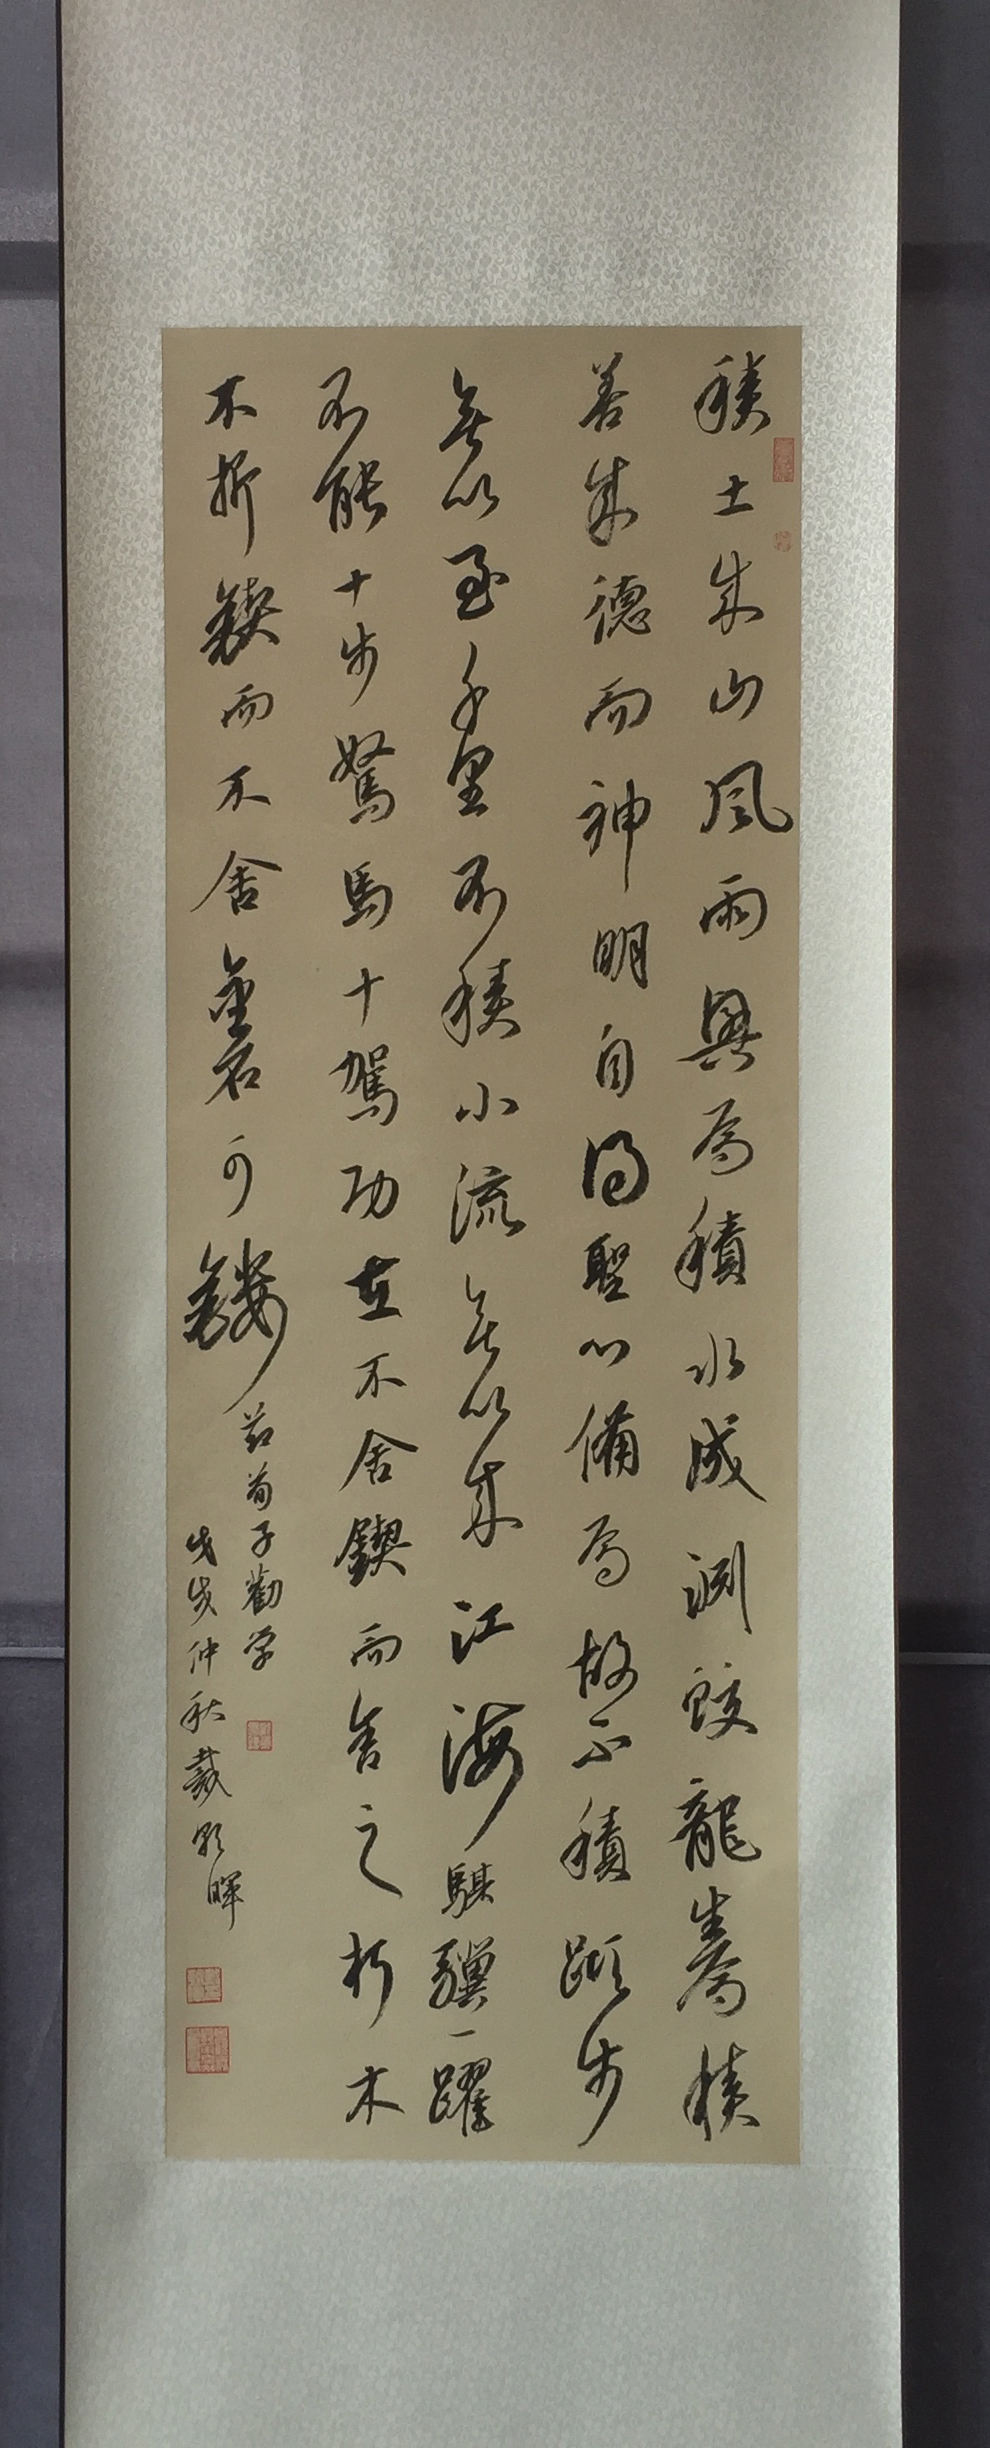 積土成山風雨興焉積水成渊蛟龍生焉積
善成德而神明自得聖心備焉故不積蹞步
無以至千里不積小流無以成江海騏驥一躍
不能十步駑馬十駕功在不舍鍥而舍之朽木
不折鍥而不舍金石可鏤
荀子勸学
戊戌仲秋戴
暉